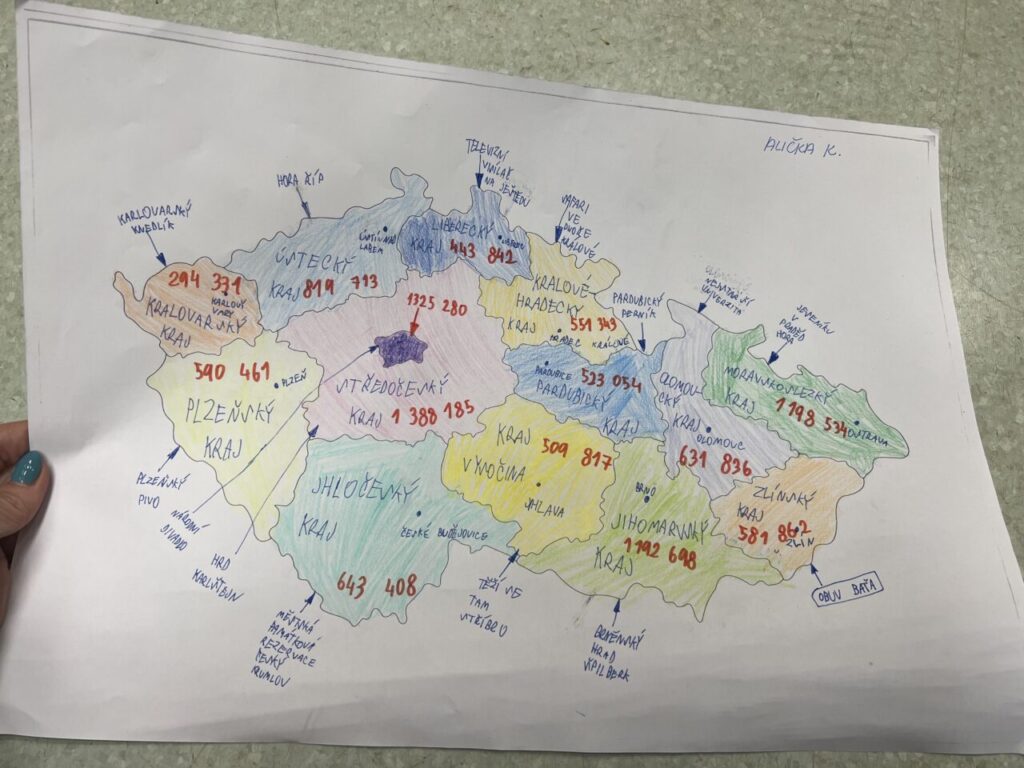 ALIČKA K.
TELEVIZNÍ
NA JEŠTĚDU
HORA ŘÍP
KARLOVARSKÝ
KNEDLÍK
VE
DVOŘE
KRÁLOVÉ
LIBERECKÝ
KRAJ
443 842
ÚSTECKÝ
KRAJ 819 713
ÚSTÍ NAD
LABEM
294 371
KARLOVY
VARY
KRALOVARSKÝ
KRAJ
1325 280
KRÁLOVÉ
HRADECKÝ
KRAJ
551 343
HRADEC KRÁLOVÉ
PARDUBICKÝ
PERNÍK
UNIVERZITA
HORA
590 461
PLZEŇ
PLZEŇSKÝ
KRAJ
STŘEDOČESKÝ
KRAJ 1 388 185
PARDUBICE
523 054
PARDUBICKÝ
KRAJ
OLOMOU-
CKÝ
KRAJ
OLOMOUC
631 836
MORAVSKOSLEZKÝ
KRAJ
1 198 534
OSTRAVA
KRAJ
509 817
VYSOČINA
JHLAVA
JHLOČESKÝ
KRAJ
ČESKÉ BUDĚJOVICE
643 408
BRNO
JIHOMARVKÝ
1192 698
KRAJ
ZLÍNSKÝ
KRAJ
581 862
ZLÍN
PLZEŇSKÝ
PIVO
NÁRODNÍ
DIVADLO
HRD
KARLŠTEJN
MĚSTSKÁ
PAMÁTKOVÁ
REZERVACE
ČESKÝ
KRUMLOV
TĚŽÍ SE
TAM
STŘÍBRO
BRNĚNSKÝ
HRAD
ŠPILBERK
OBUV BAŤA